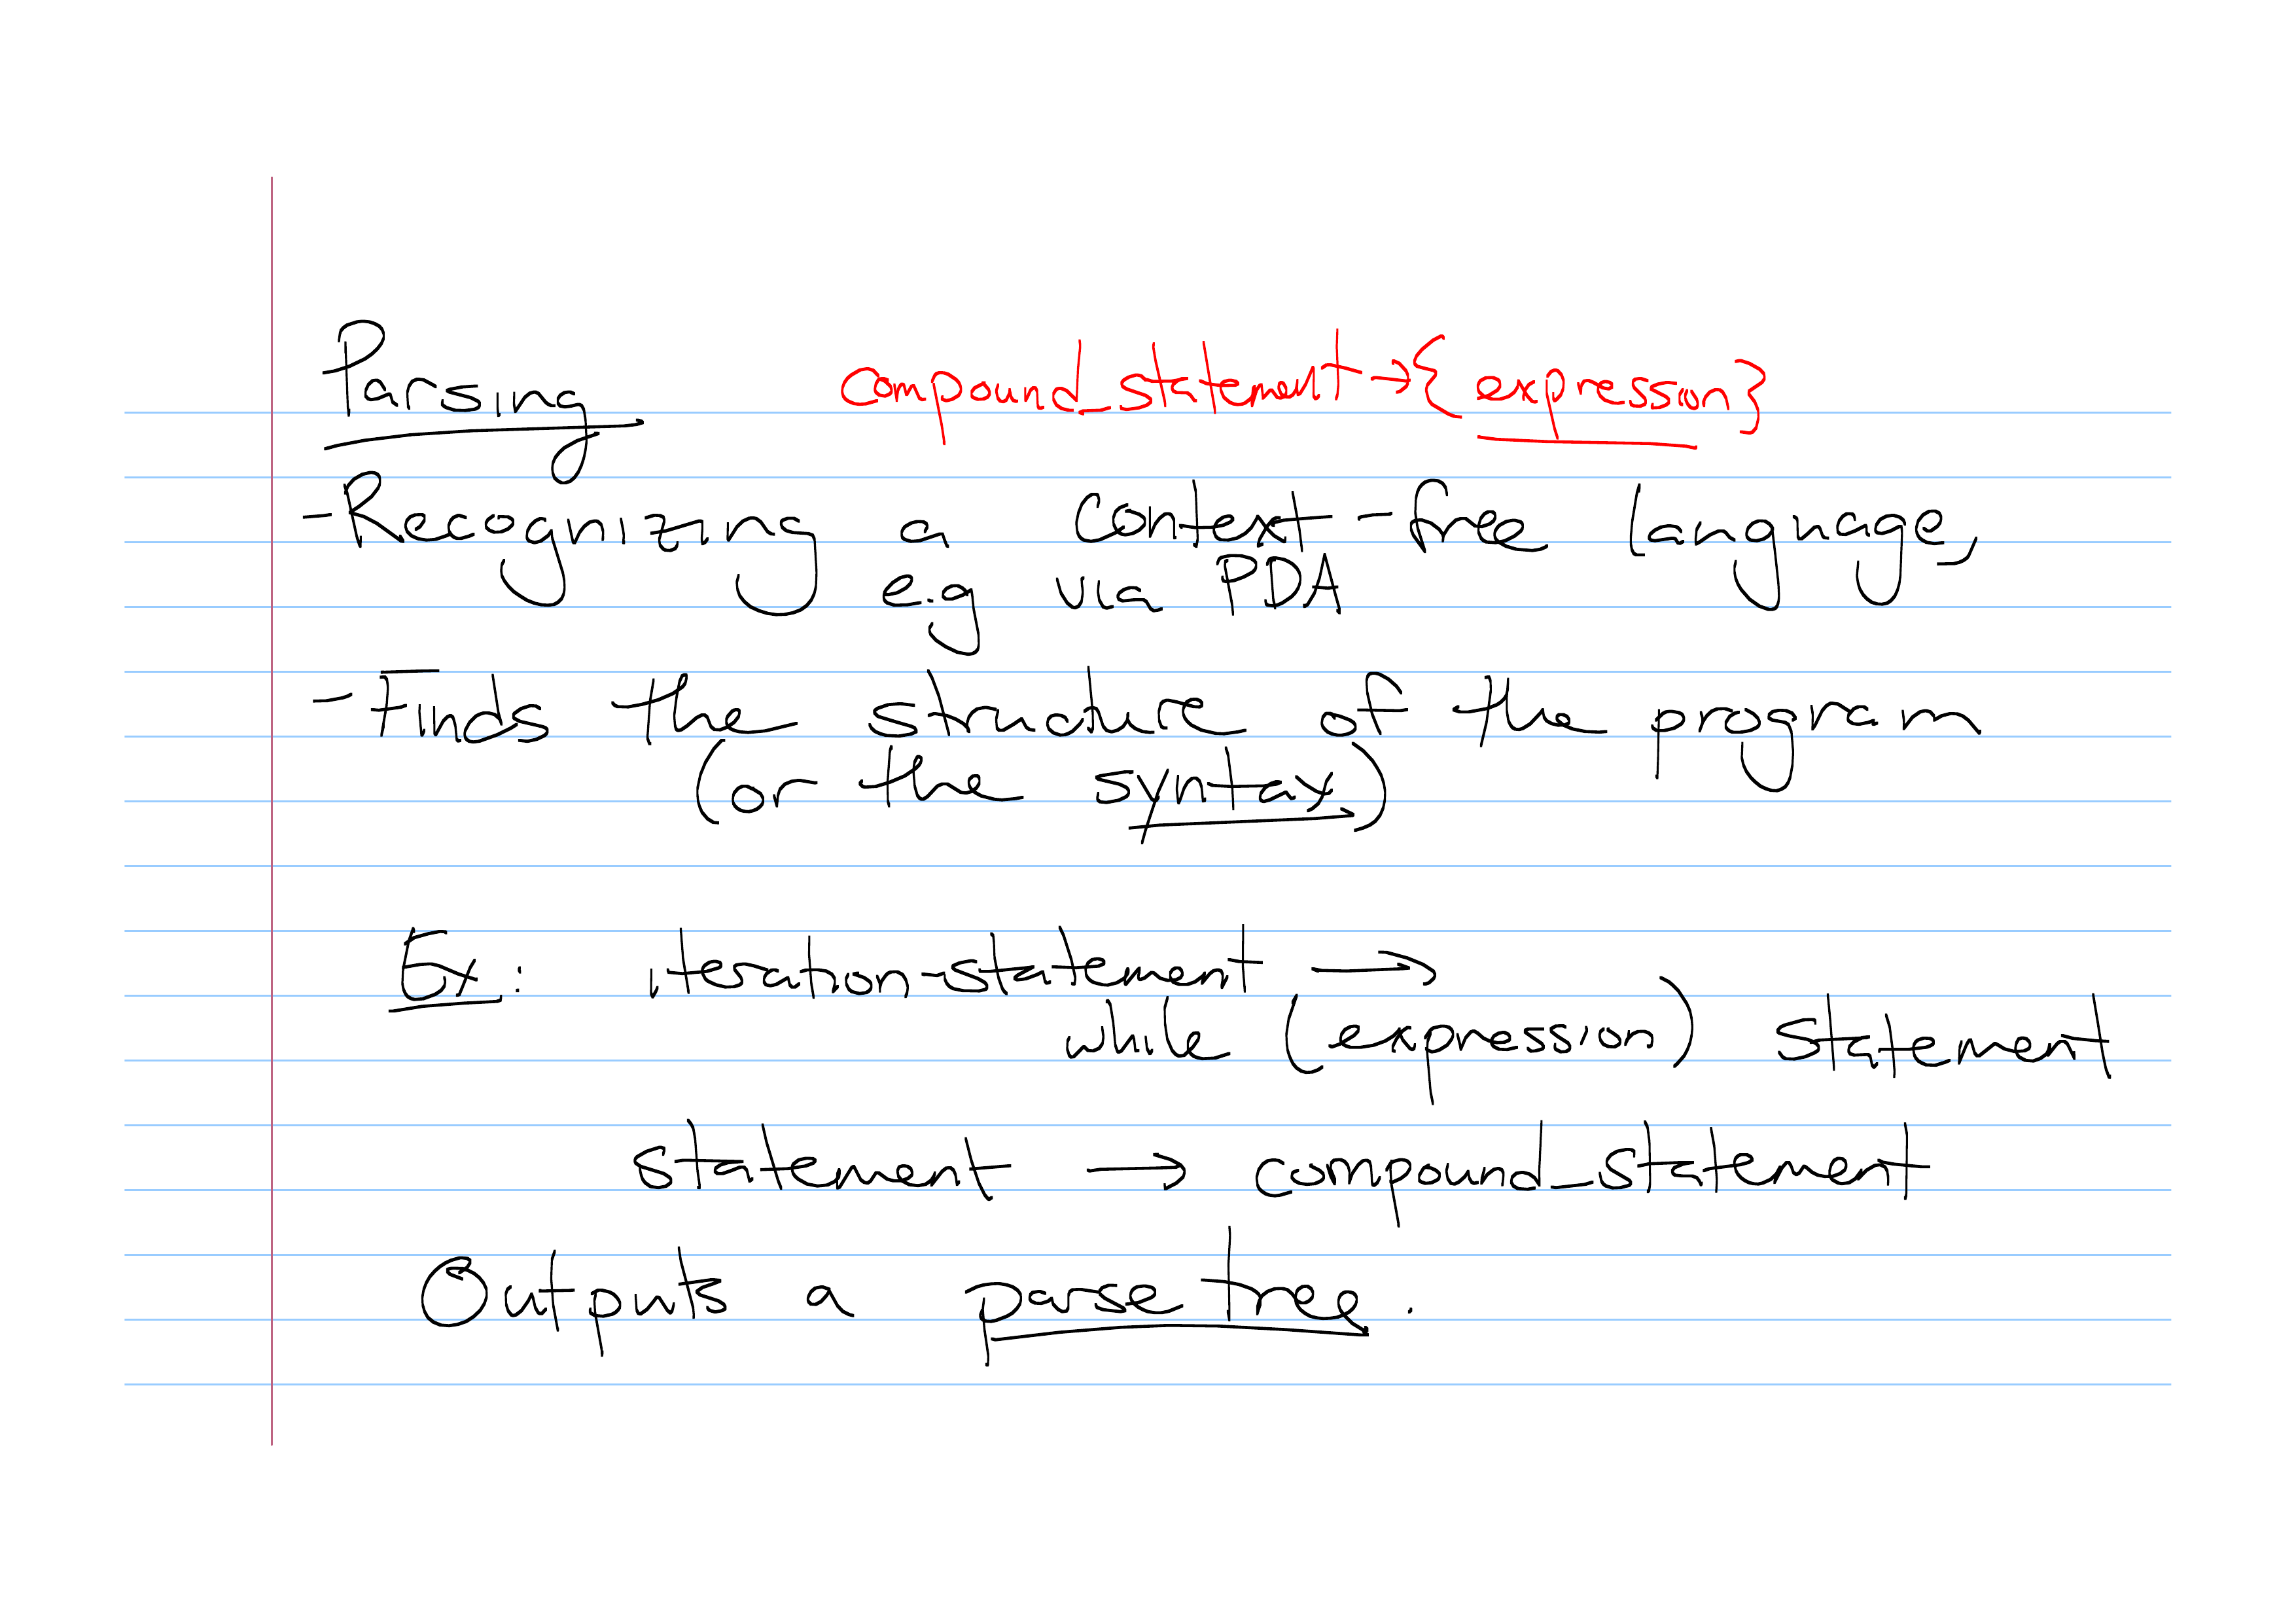 Parsing
compound_statement → { expression }
- Recognizing a context-free language,
e.g via PDA
- Finds the structure of the program
(or the syntax)
Ex: iteration-statement →
while (expression) statement
statement → compound_statement
Outputs a parse tree.